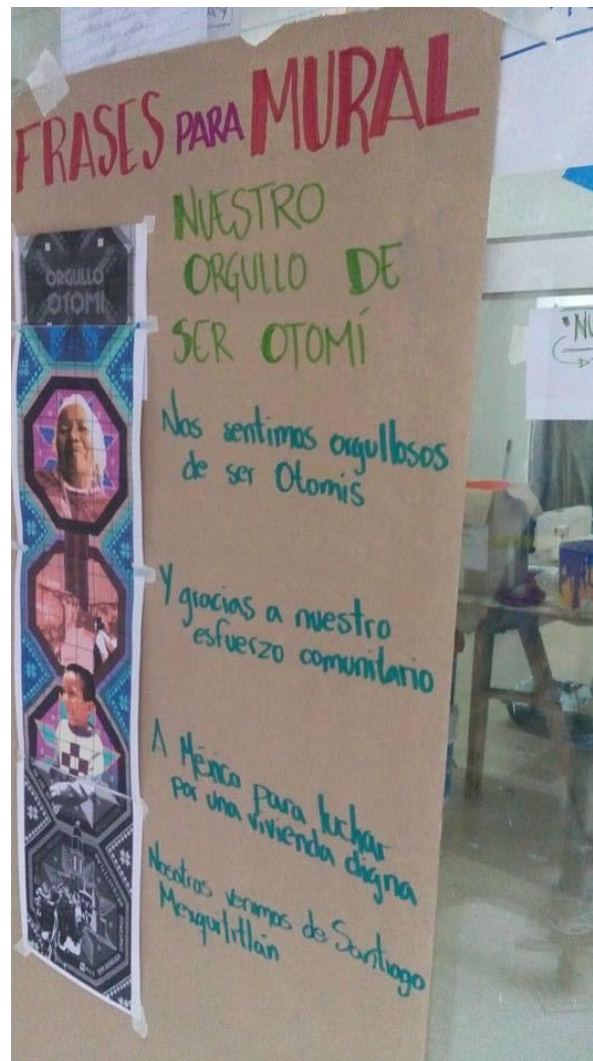 FRASES PARA MURAL
NUESTRO
ORGULLO DE
SER OTOMÍ
ORGULLO
OTOMÍ
Nos sentimos orgullosos
de ser Otomis
Y gracias a nuestro
esfuerzo comunitario
A México para luchar
por una vivienda digna
Nosotros venimos de Santiago
Mexquititlán
"NU